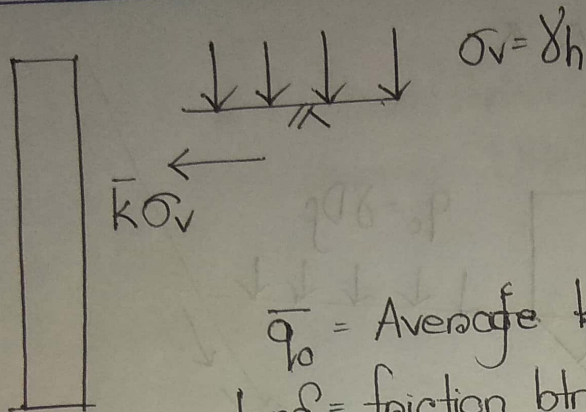 σv = γh
k̄σv
q̄₀ = Average
= friction btn